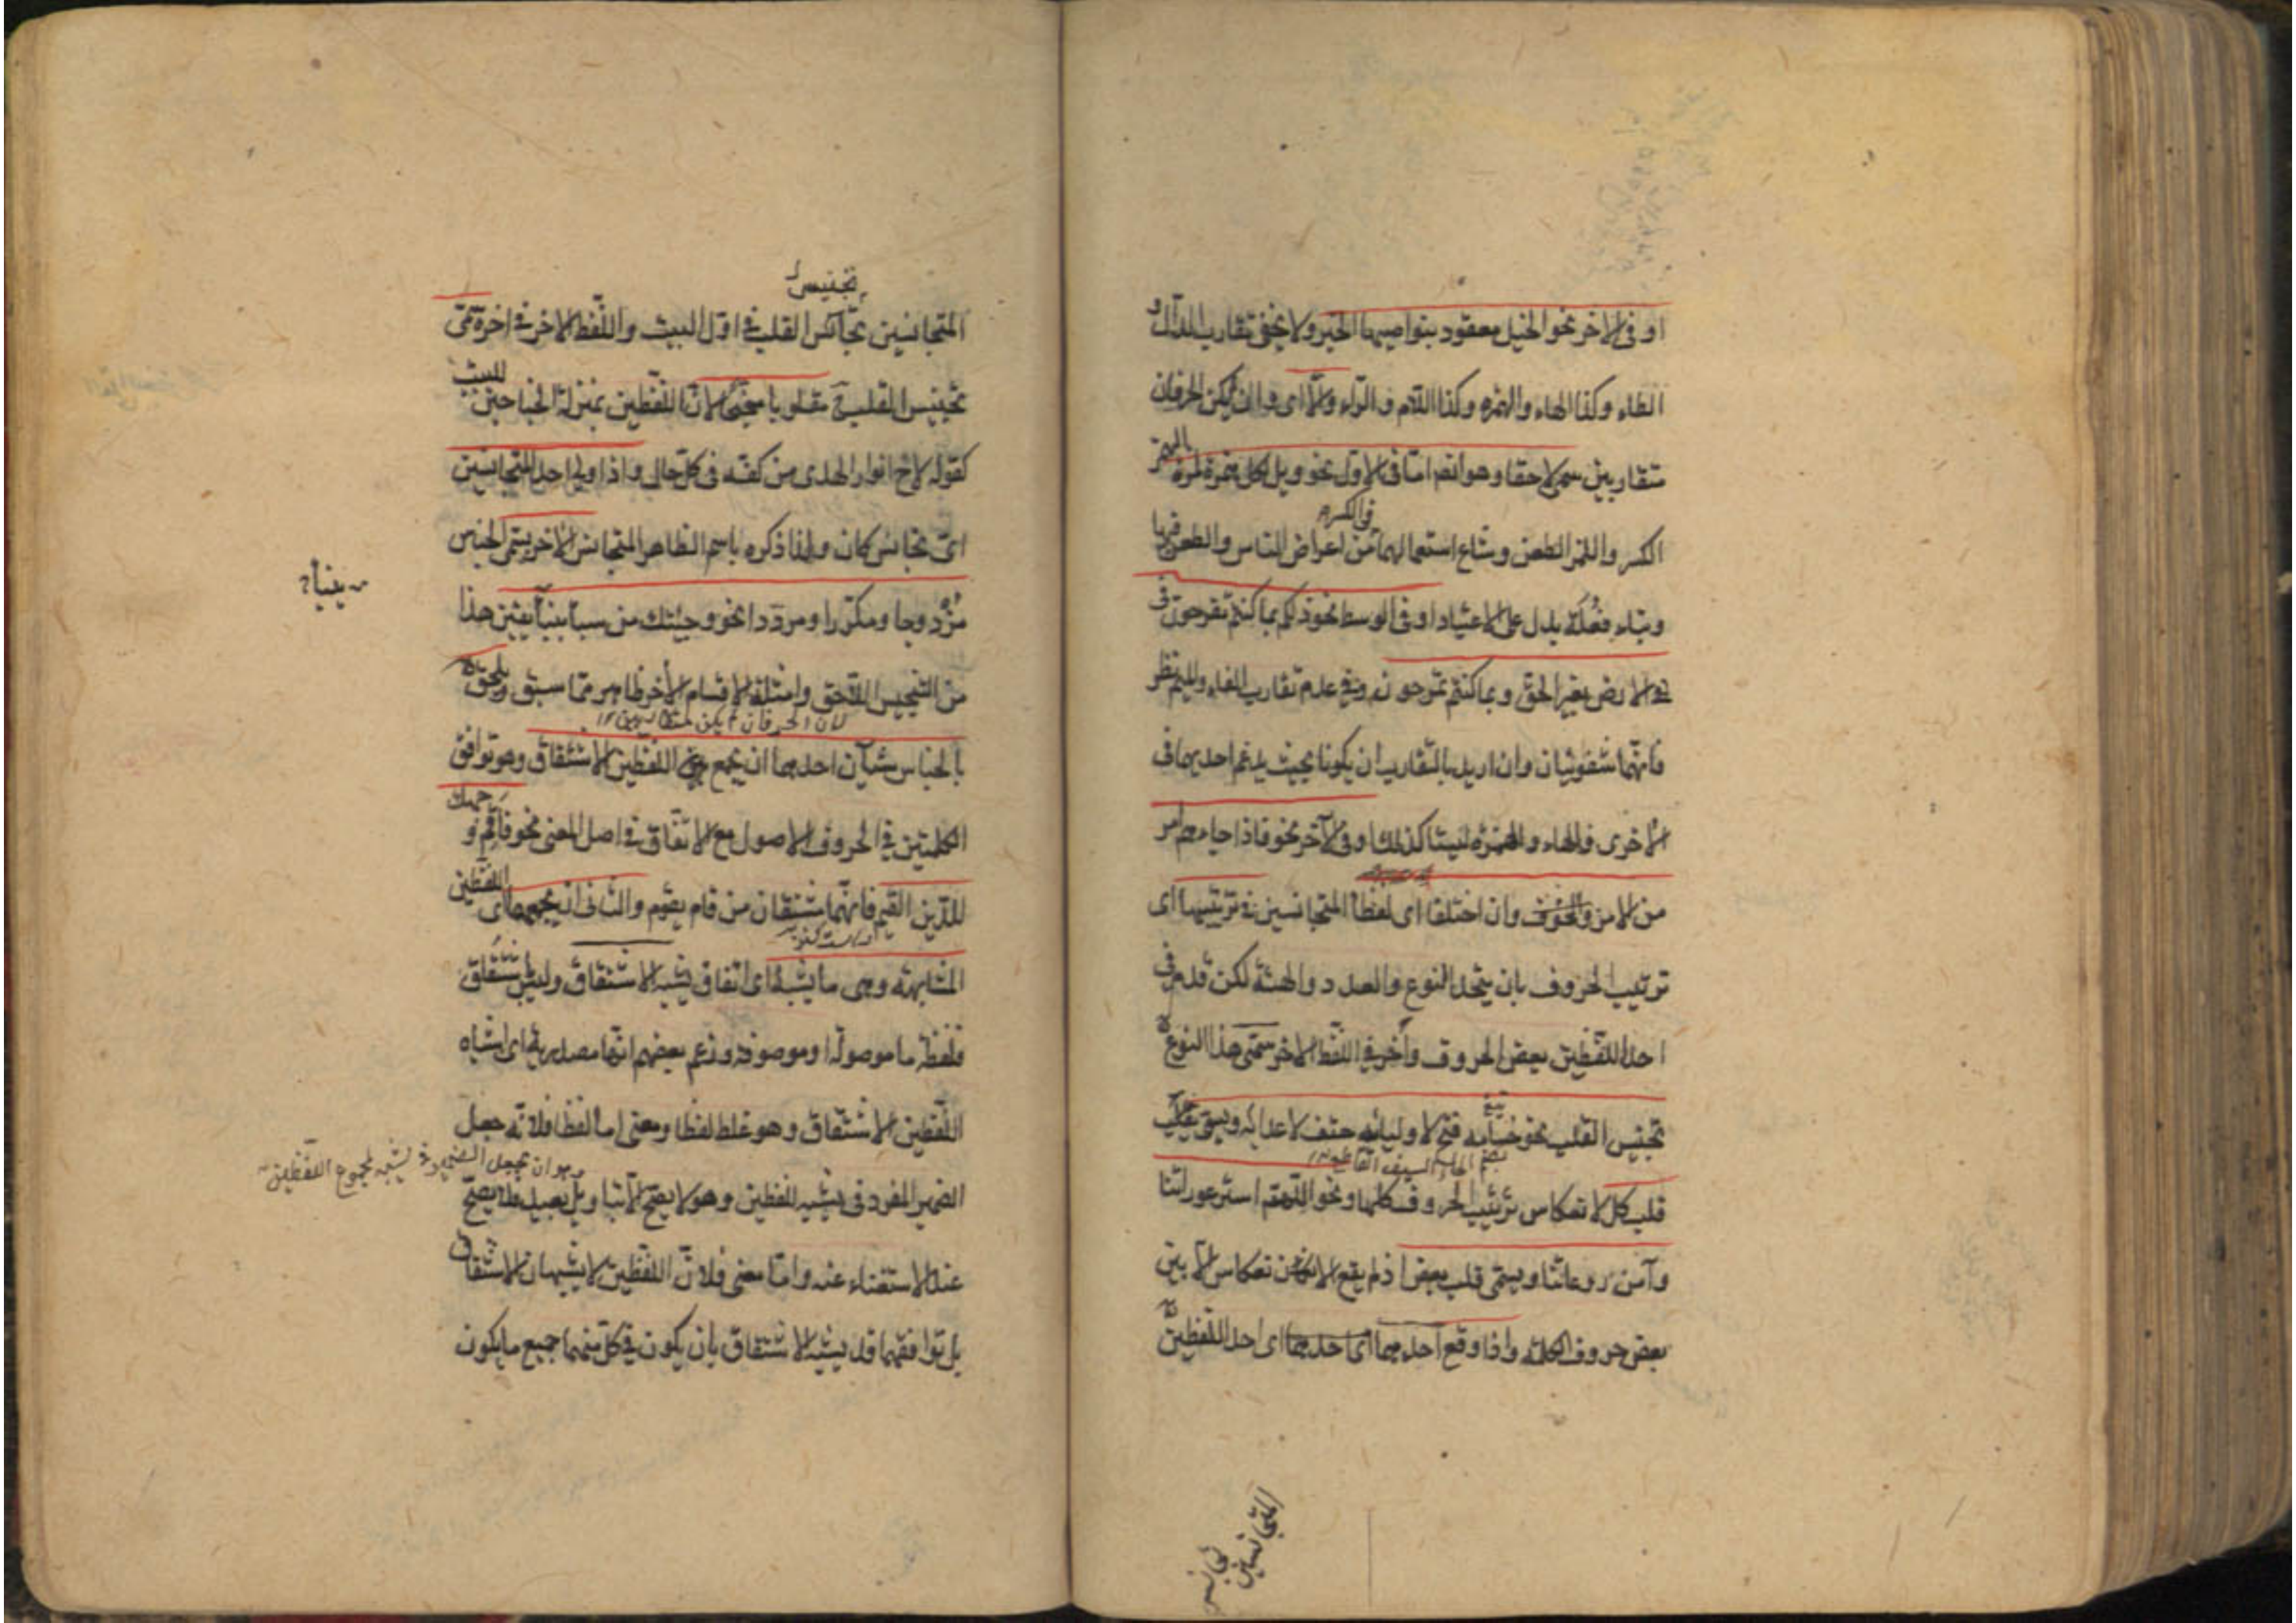 او فى الاخر نحو الخيل معقود بنواصيها الخير ولا يخفى تقارب الدال و
الطاء وكذا الهاء والهمزه وكذا اللام والراء والا اى وان لم يكن الحرفان
متقاربين سمى لاحقا وهو ايضا اما فى الاول نحو ويل لكل همزة لمزة الهمز
الكسر واللمز الطعن وشاع استعمالهما فى الكسر من اعراض الناس والطعن فيها
وبناء فُعَلَة يدل على الاعتياد او فى الوسط نحو ذلكم بما كنتم تفرحون فى
الارض بغير الحق وبما كنتم تمرحون وفى عدم تقارب الفاء والميم نظر
فانهما شفويتان وان اريد بالتقارب ان يكونا بحيث يدغم احديهما فى
الاخرى فالهاء والهمزه ليستا كذلك او فى الآخر نحو فاذا جاءهم امر
من الامن والخوف وان اختلفا اى لفظا المتجانسين فى ترتيبها اى
ترتيب الحروف بان يتحد النوع والعدد والهيئة لكن قدم فى
احد اللفظين بعض الحروف وأخر فى اللفظ الاخر سمى هذا النوع
تجنيس القلب نحو حسامه فتح لاوليائه حتف لاعدائه ويسمى
بضم الحاء السيف القاطع
قلب كل لانعكاس ترتيب الحروف كلها ونحو اللهم استر عوراتنا
وآمن روعاتنا ويسمى قلب بعض اذ لم يقع الانعكاس الا بين
بعض حروف الكلمة واذا وقع احدهما اى احدهما اى احد اللفظين
المتجانسين
تجانس
تجنيس
المتجانسين تجانس القلب فى اول البيت واللفظ الاخر فى اخره سمى
تجنيس القلب مقلوبا مجنحا لان اللفظين بمنزلة الجناحين للبيت
كقوله لاح انوار الهدى من كفه فى كل حال واذا ولى احد المتجانسين
اى تجانس كان ولذا ذكره باسم الظاهر المتجانس الاخر يسمى الجناس
مزدوجا ومكررا ومرددا نحو وجئتك من سبأ بنبأ يقين هذا
من التجنيس اللاحق وامثلة الاقسام الأخر ظاهر مما سبق ويلحق
لان الحرفان لم يكن متقاربين
بالجناس شيآن احدهما ان يجمع اللفظين الاشتقاق وهو توافق
الكلمتين فى الحروف الاصول مع الاتفاق فى اصل المعنى نحو فأقم وجهك
للدين القيم فانهما مشتقان من قام يقوم والثانى ان يجمعهما اى اللفظين
المشابهة وهى ما يشبه اى اتفاق يشبه الاشتقاق وليس باشتقاق
فلفظة ما موصولة او موصوفة وزعم بعضهم انها مصدرية اى اشباه
اللفظين الاشتقاق وهو غلط لفظا ومعنى اما لفظا فلانه جعل
وهو ان يجعل الضمير فى يشبه لمجموع اللفظين
الضمير المفرد فى يشبه للفظين وهو لا يصح الا بتاويل بعيد فلا يصح
عند الاستغناء عنه واما معنى فلان اللفظين لا يشبهان الاشتقاق
بل توافقهما قد يشبه الاشتقاق بان يكون فى كل منهما جميع ما يكون